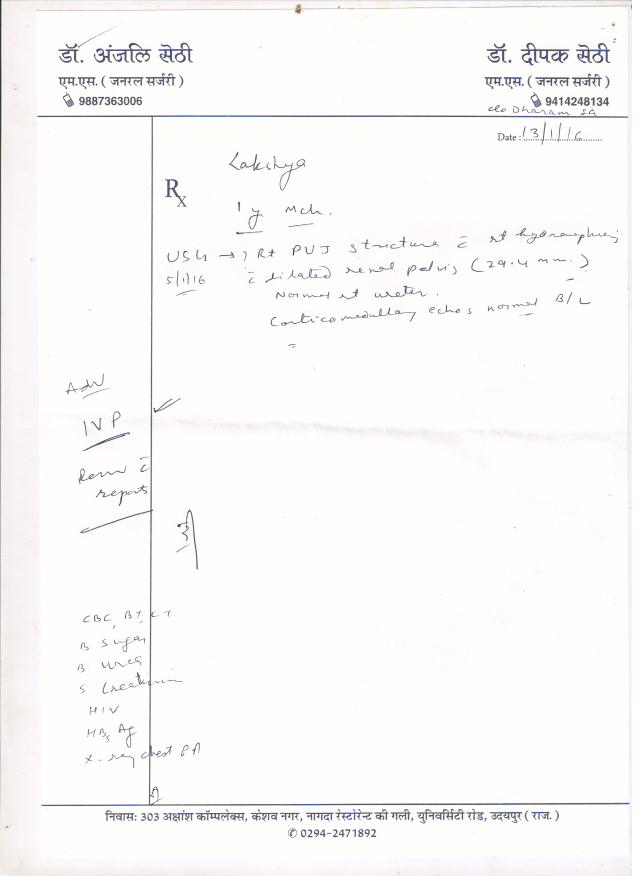 डॉ. अंजलि सेठी
एम.एस. ( जनरल सर्जरी )
9887363006
डॉ. दीपक सेठी
एम.एस. ( जनरल सर्जरी )
9414248134
c/o Dharam sa
Date : 13/1/16
Lakshya
Rx
1 y Mch.
USG → Rt PUJ structure c̄ rt hydronephrosis
5/1/16 c̄ dilated renal pelvis (29.4 mm.)
Normal rt ureter.
Corticomedullary echos normal B/L
Adv
IVP
Review c̄
reports
CBC, BT, CT
B Sugar
B Urea
S Creatinine
HIV
HBs Ag
X-ray chest PA
निवासः 303 अक्षांश कॉम्पलेक्स, केशव नगर, नागदा रेस्टोरेन्ट की गली, युनिवर्सिटी रोड, उदयपुर ( राज. )
✆ 0294-2471892